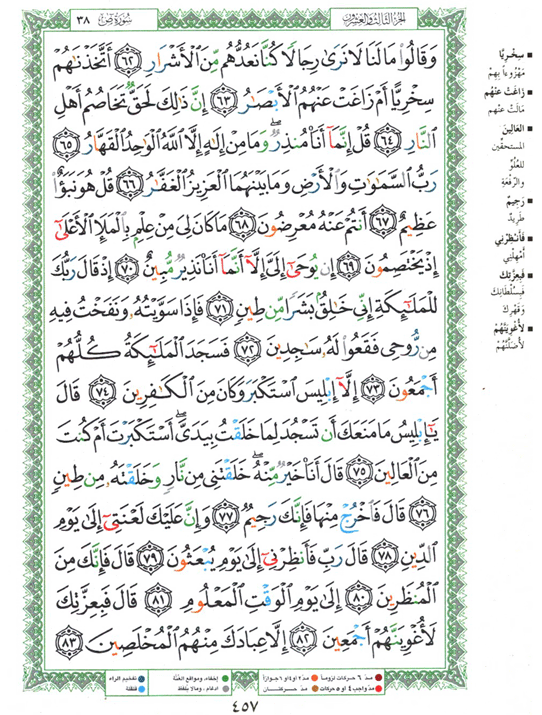 الجزء الثالث والعشرون
سورة ص ٣٨
وَقَالُوا۟ مَا لَنَا لَا نَرَىٰ رِجَالًا كُنَّا نَعُدُّهُم مِّنَ ٱلْأَشْرَارِ ٦٢ أَتَّخَذْنَٰهُمْ
سِخْرِيًّا أَمْ زَاغَتْ عَنْهُمُ ٱلْأَبْصَٰرُ ٦٣ إِنَّ ذَٰلِكَ لَحَقٌّ تَخَاصُمُ أَهْلِ
ٱلنَّارِ ٦٤ قُلْ إِنَّمَآ أَنَا۠ مُنذِرٌ ۖ وَمَا مِنْ إِلَٰهٍ إِلَّا ٱللَّهُ ٱلْوَٰحِدُ ٱلْقَهَّارُ ٦٥
رَبُّ ٱلسَّمَٰوَٰتِ وَٱلْأَرْضِ وَمَا بَيْنَهُمَا ٱلْعَزِيزُ ٱلْغَفَّٰرُ ٦٦ قُلْ هُوَ نَبَؤٌا۟
عَظِيمٌ ٦٧ أَنتُمْ عَنْهُ مُعْرِضُونَ ٦٨ مَا كَانَ لِىَ مِنْ عِلْمٍۭ بِٱلْمَلَإِ ٱلْأَعْلَىٰٓ
إِذْ يَخْتَصِمُونَ ٦٩ إِن يُوحَىٰٓ إِلَىَّ إِلَّآ أَنَّمَآ أَنَا۠ نَذِيرٌ مُّبِينٌ ٧٠ إِذْ قَالَ رَبُّكَ
لِلْمَلَٰٓئِكَةِ إِنِّى خَٰلِقٌۢ بَشَرًا مِّن طِينٍ ٧١ فَإِذَا سَوَّيْتُهُۥ وَنَفَخْتُ فِيهِ
مِن رُّوحِى فَقَعُوا۟ لَهُۥ سَٰجِدِينَ ٧٢ فَسَجَدَ ٱلْمَلَٰٓئِكَةُ كُلُّهُمْ
أَجْمَعُونَ ٧٣ إِلَّآ إِبْلِيسَ ٱسْتَكْبَرَ وَكَانَ مِنَ ٱلْكَٰفِرِينَ ٧٤ قَالَ
يَٰٓإِبْلِيسُ مَا مَنَعَكَ أَن تَسْجُدَ لِمَا خَلَقْتُ بِيَدَىَّ ۖ أَسْتَكْبَرْتَ أَمْ كُنتَ
مِنَ ٱلْعَالِينَ ٧٥ قَالَ أَنَا۠ خَيْرٌ مِّنْهُ ۖ خَلَقْتَنِى مِن نَّارٍ وَخَلَقْتَهُۥ مِن طِينٍ
٧٦ قَالَ فَٱخْرُجْ مِنْهَا فَإِنَّكَ رَجِيمٌ ٧٧ وَإِنَّ عَلَيْكَ لَعْنَتِىٓ إِلَىٰ يَوْمِ
ٱلدِّينِ ٧٨ قَالَ رَبِّ فَأَنظِرْنِىٓ إِلَىٰ يَوْمِ يُبْعَثُونَ ٧٩ قَالَ فَإِنَّكَ مِنَ
ٱلْمُنظَرِينَ ٨٠ إِلَىٰ يَوْمِ ٱلْوَقْتِ ٱلْمَعْلُومِ ٨١ قَالَ فَبِعِزَّتِكَ
لَأُغْوِيَنَّهُمْ أَجْمَعِينَ ٨٢ إِلَّا عِبَادَكَ مِنْهُمُ ٱلْمُخْلَصِينَ ٨٣
سِخْرِيًّا
مَهْزُوءًا بِهِمْ
زَاغَتْ عَنْهُم
مَالَتْ عَنْهُم
العَالِينَ
المستحقّين
للعُلُوِّ
والرِّفْعَةِ
رَجِيمٌ
طَرِيدٌ
فَأَنْظِرْنِي
أَمْهِلْنِي
فَبِعِزَّتِكَ
فَبِسُلْطَانِكَ
وَقَهْرِكَ
لَأُغْوِيَنَّهُمْ
لَأُضِلَّنَّهُمْ
مدّ ٦ حركات لزوماً
مدّ ٢ أو ٤ أو ٦ جوازاً
إخفاء، ومواقع الغُنَّة
تفخيم الراء
مدّ واجب ٤ أو ٥ حركات
مدّ حركتان
ادغام، وما لا يُلفَظ
قلقلة
٤٥٧